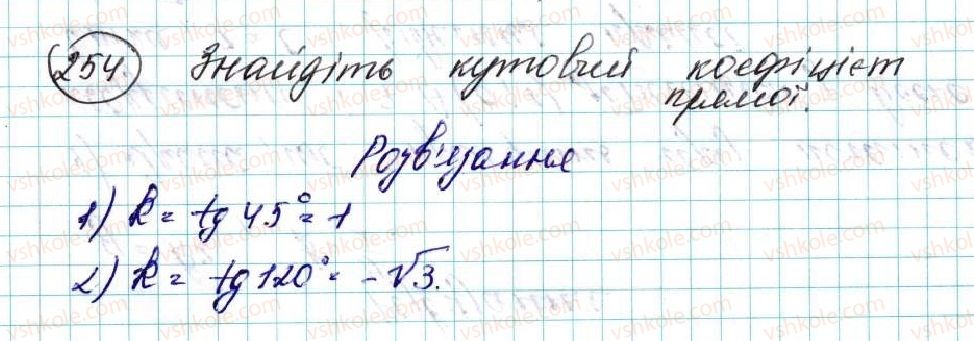 254 Знайдіть кутовий коефіцієт
прямої.
Розв'язання
1) k = tg 45° = 1
2) k = tg 120° = -√3.